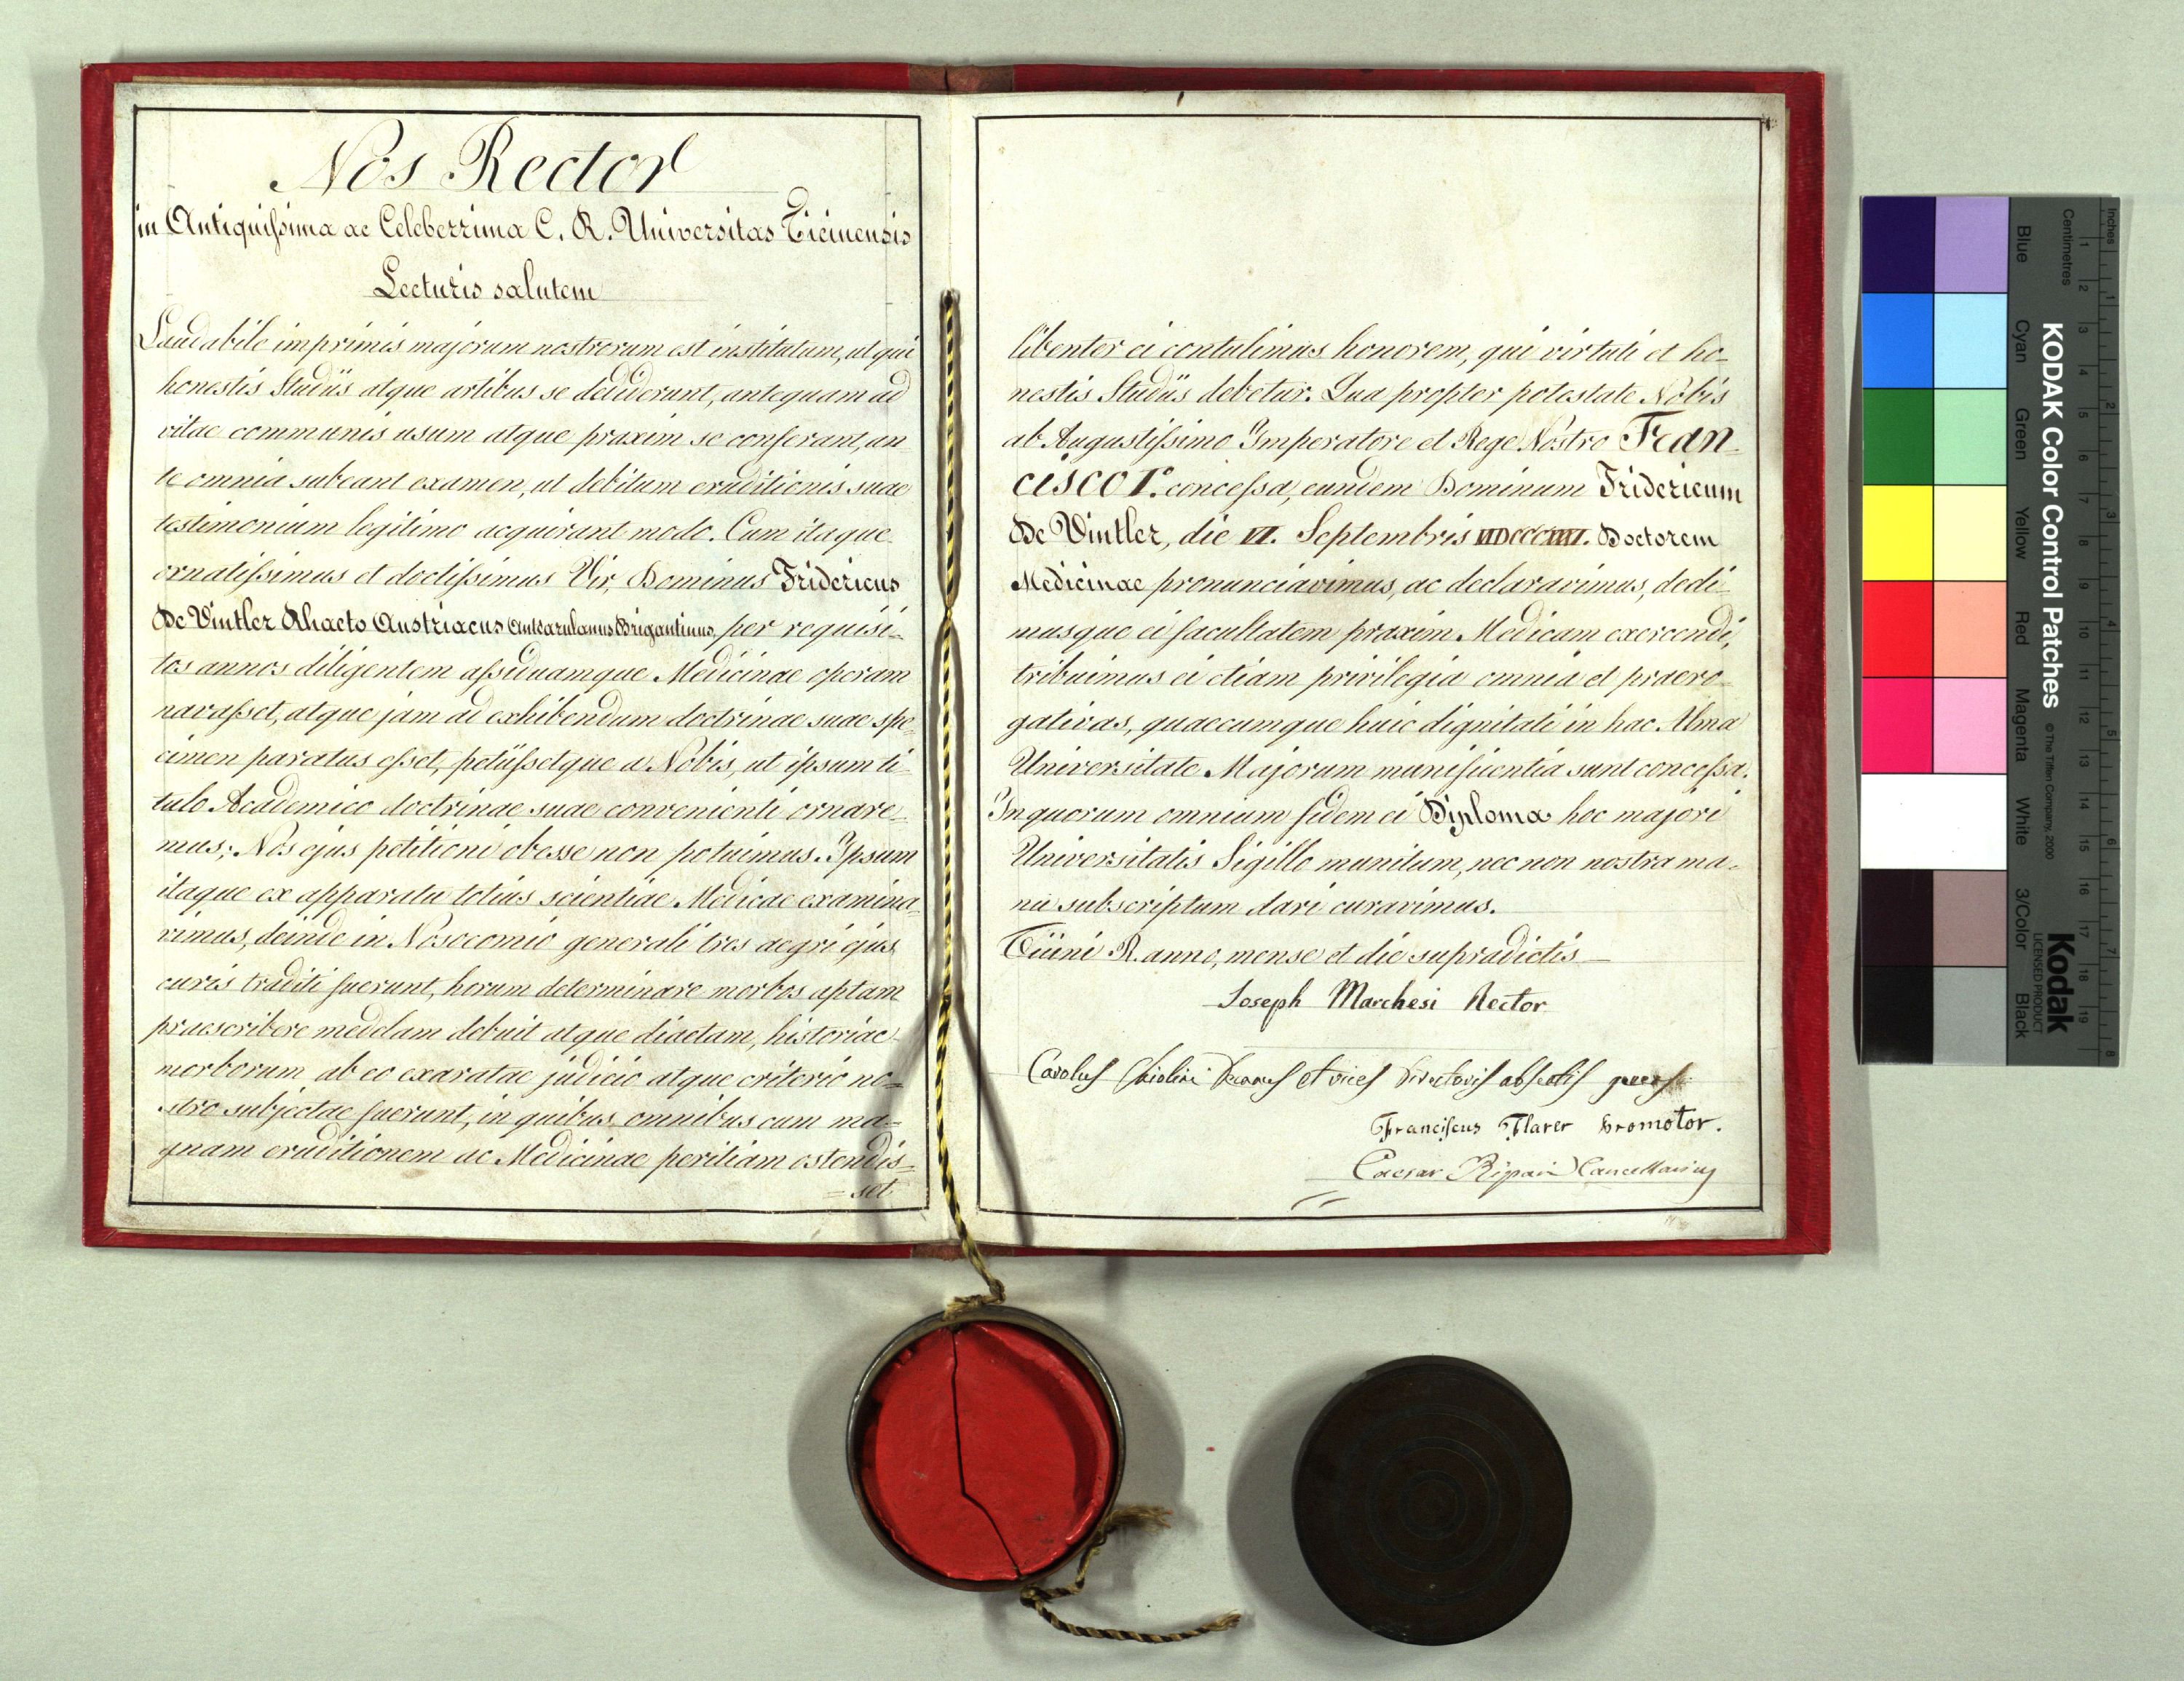 Nos Rector
in Antiquissima ac Celeberrima C. R. Universitas Ticinensis
Lecturis salutem
Laudabile imprimis majorum nostrorum est institutum, ut qui
honestis Studiis atque artibus se dediderunt, antequam ad
vitae communis usum atque praxim se conferant, an
te omnia subeant examen, ut debitum eruditionis suae
testimonium legitimo acquirant modo. Cum itaque
ornatissimus et doctissimus Vir, Dominus Fridericus
De Vintler Rhaeto Austriacus Brigantinus, per requisi-
tos annos diligentem assiduamque Medicinae operam
navasset, atque jam ad exhibendum doctrinae suae spe-
cimen paratus esset, petiissetque a Nobis, ut ipsum ti-
tulo Academico doctrinae suae convenienti ornare-
mus; Nos ejus petitioni obesse non potuimus. Ipsum
itaque ex apparatu totius scientiae Medicae examina-
vimus, deinde in Nosocomio generali tres aegri ejus
curis traditi fuerunt, horum determinare morbos aptam
praescribere medelam debuit atque diaetam, historiae
morborum ab eo exaratae judicio atque criterio no=
stro subjectae fuerunt, in quibus omnibus cum ma=
gnam eruditionem ac Medicinae peritiam ostendis=
= set
libenter ei contulimus honorem, qui virtuti et ho-
nestis Studiis debetur. Qua propter potestate Nobis
ab Augustissimo Imperatore et Rege Nostro Fran-
cisco I.º concessa, eundem Dominum Fridericum
De Vintler, die VI. Septembris Doctorem
Medicinae pronunciavimus, ac declaravimus, dedi-
musque ei facultatem praxim Medicam exercendi,
tribuimus ei etiam privilegia omnia et praero-
gativas, quaecumque huic dignitati in hac Alma
Universitate Majorum munificentia sunt concessa.
In quorum omnium fidem ei Diploma hoc majori
Universitatis Sigillo munitum, nec non nostra ma-
nu subscriptum dari curavimus.
Ticini R. anno, mense et die supradictis
Joseph Marchesi Rector
Carolus Decanus et vices Directoris absentis
Franciscus Flarer Promotor.
Caesar Cancellarius
KODAK Color Control Patches
© The Tiffen Company, 2000
Kodak
LICENSED PRODUCT
Blue
Cyan
Green
Yellow
Red
Magenta
White
3/Color
Black
Inches
Centimetres
1
2
3
4
5
6
7
8
1
2
3
4
5
6
7
8
9
10
11
12
13
14
15
16
17
18
19